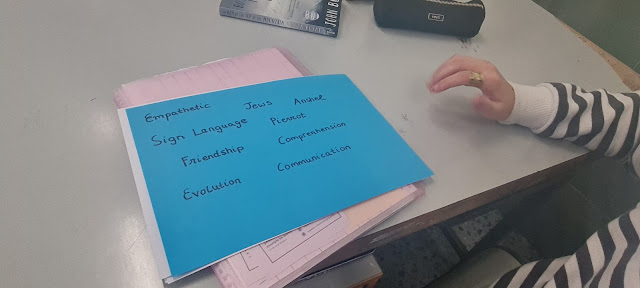 JOHN B
Empathetic Jews Anshel
Sign Language Pierrot
Friendship Comprehension
Evolution Communication